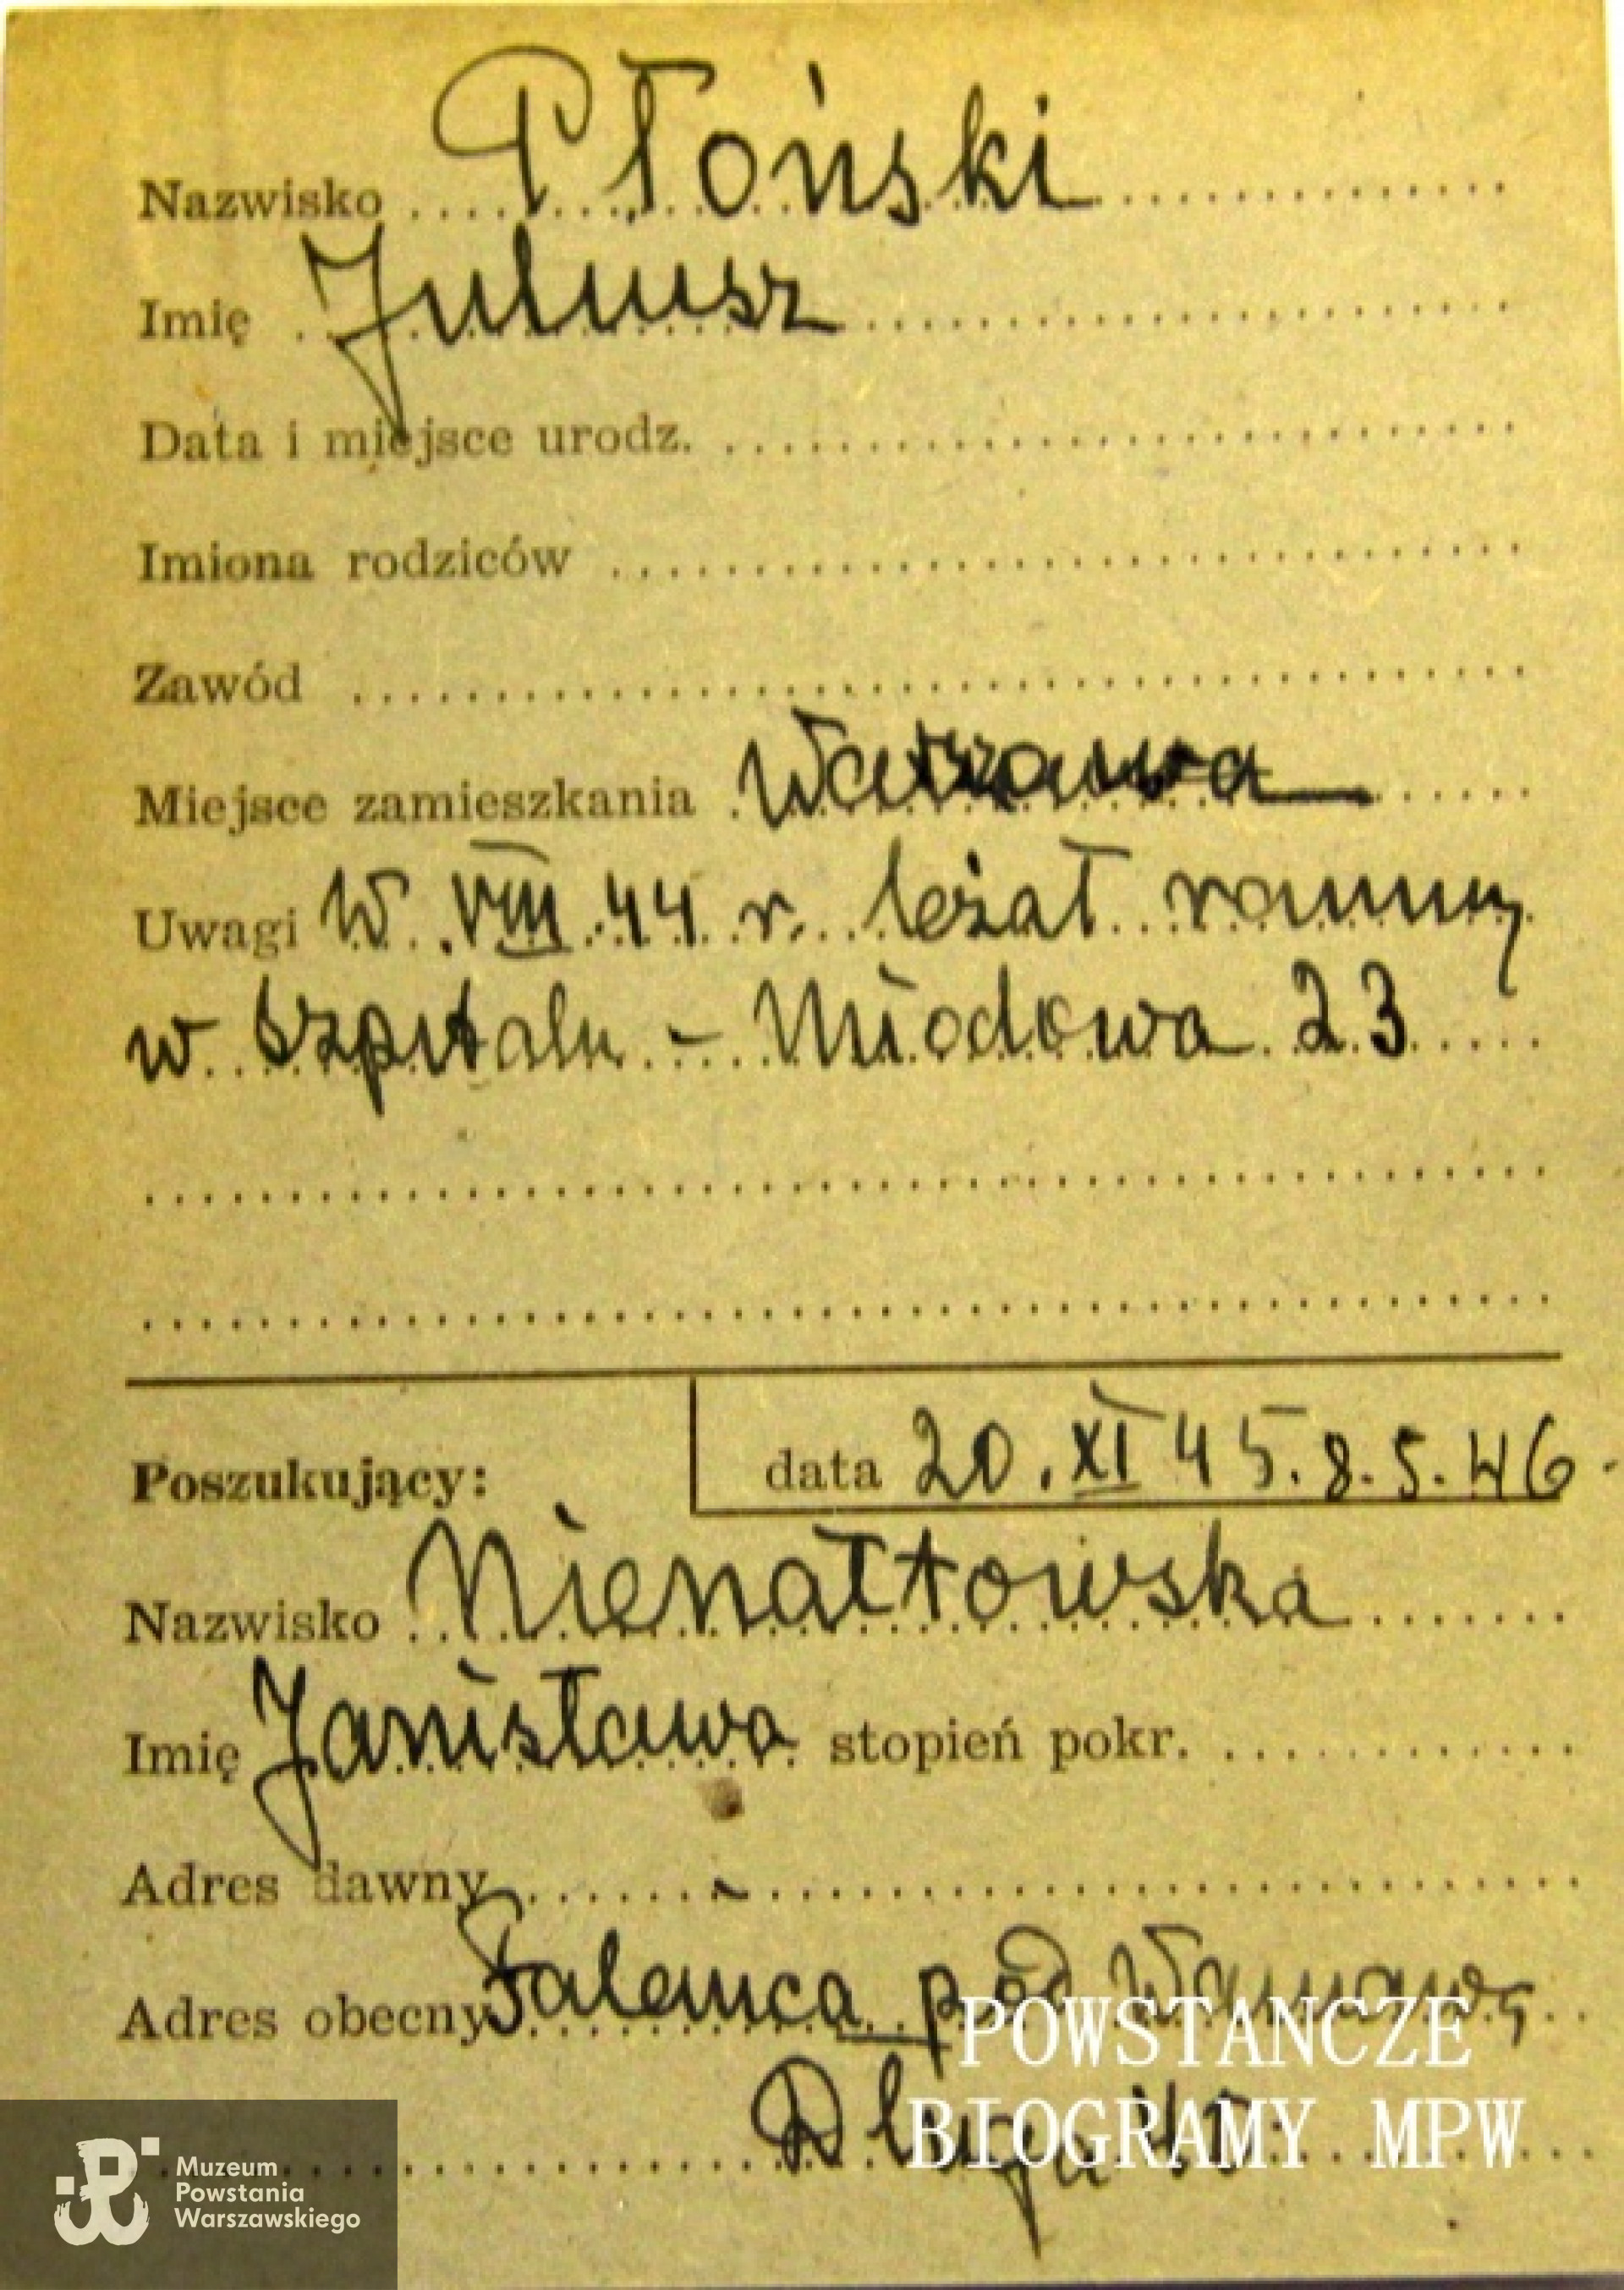 Nazwisko Płoński
Imię Juliusz
Data i miejsce urodz.
Imiona rodziców
Zawód
Miejsce zamieszkania Warszawa
Uwagi W VIII.44 r. leżał ranny
w szpitalu - Miodowa 23
Poszukujący: data 20.XI 45. 8.5.46.
Nazwisko Nienałtowska
Imię Janisława stopień pokr.
Adres dawny -
Adres obecny Falenica pod Warszawą
POWSTANCZE
Długa
BIOGRAMY MPW
Muzeum
Powstania
Warszawskiego